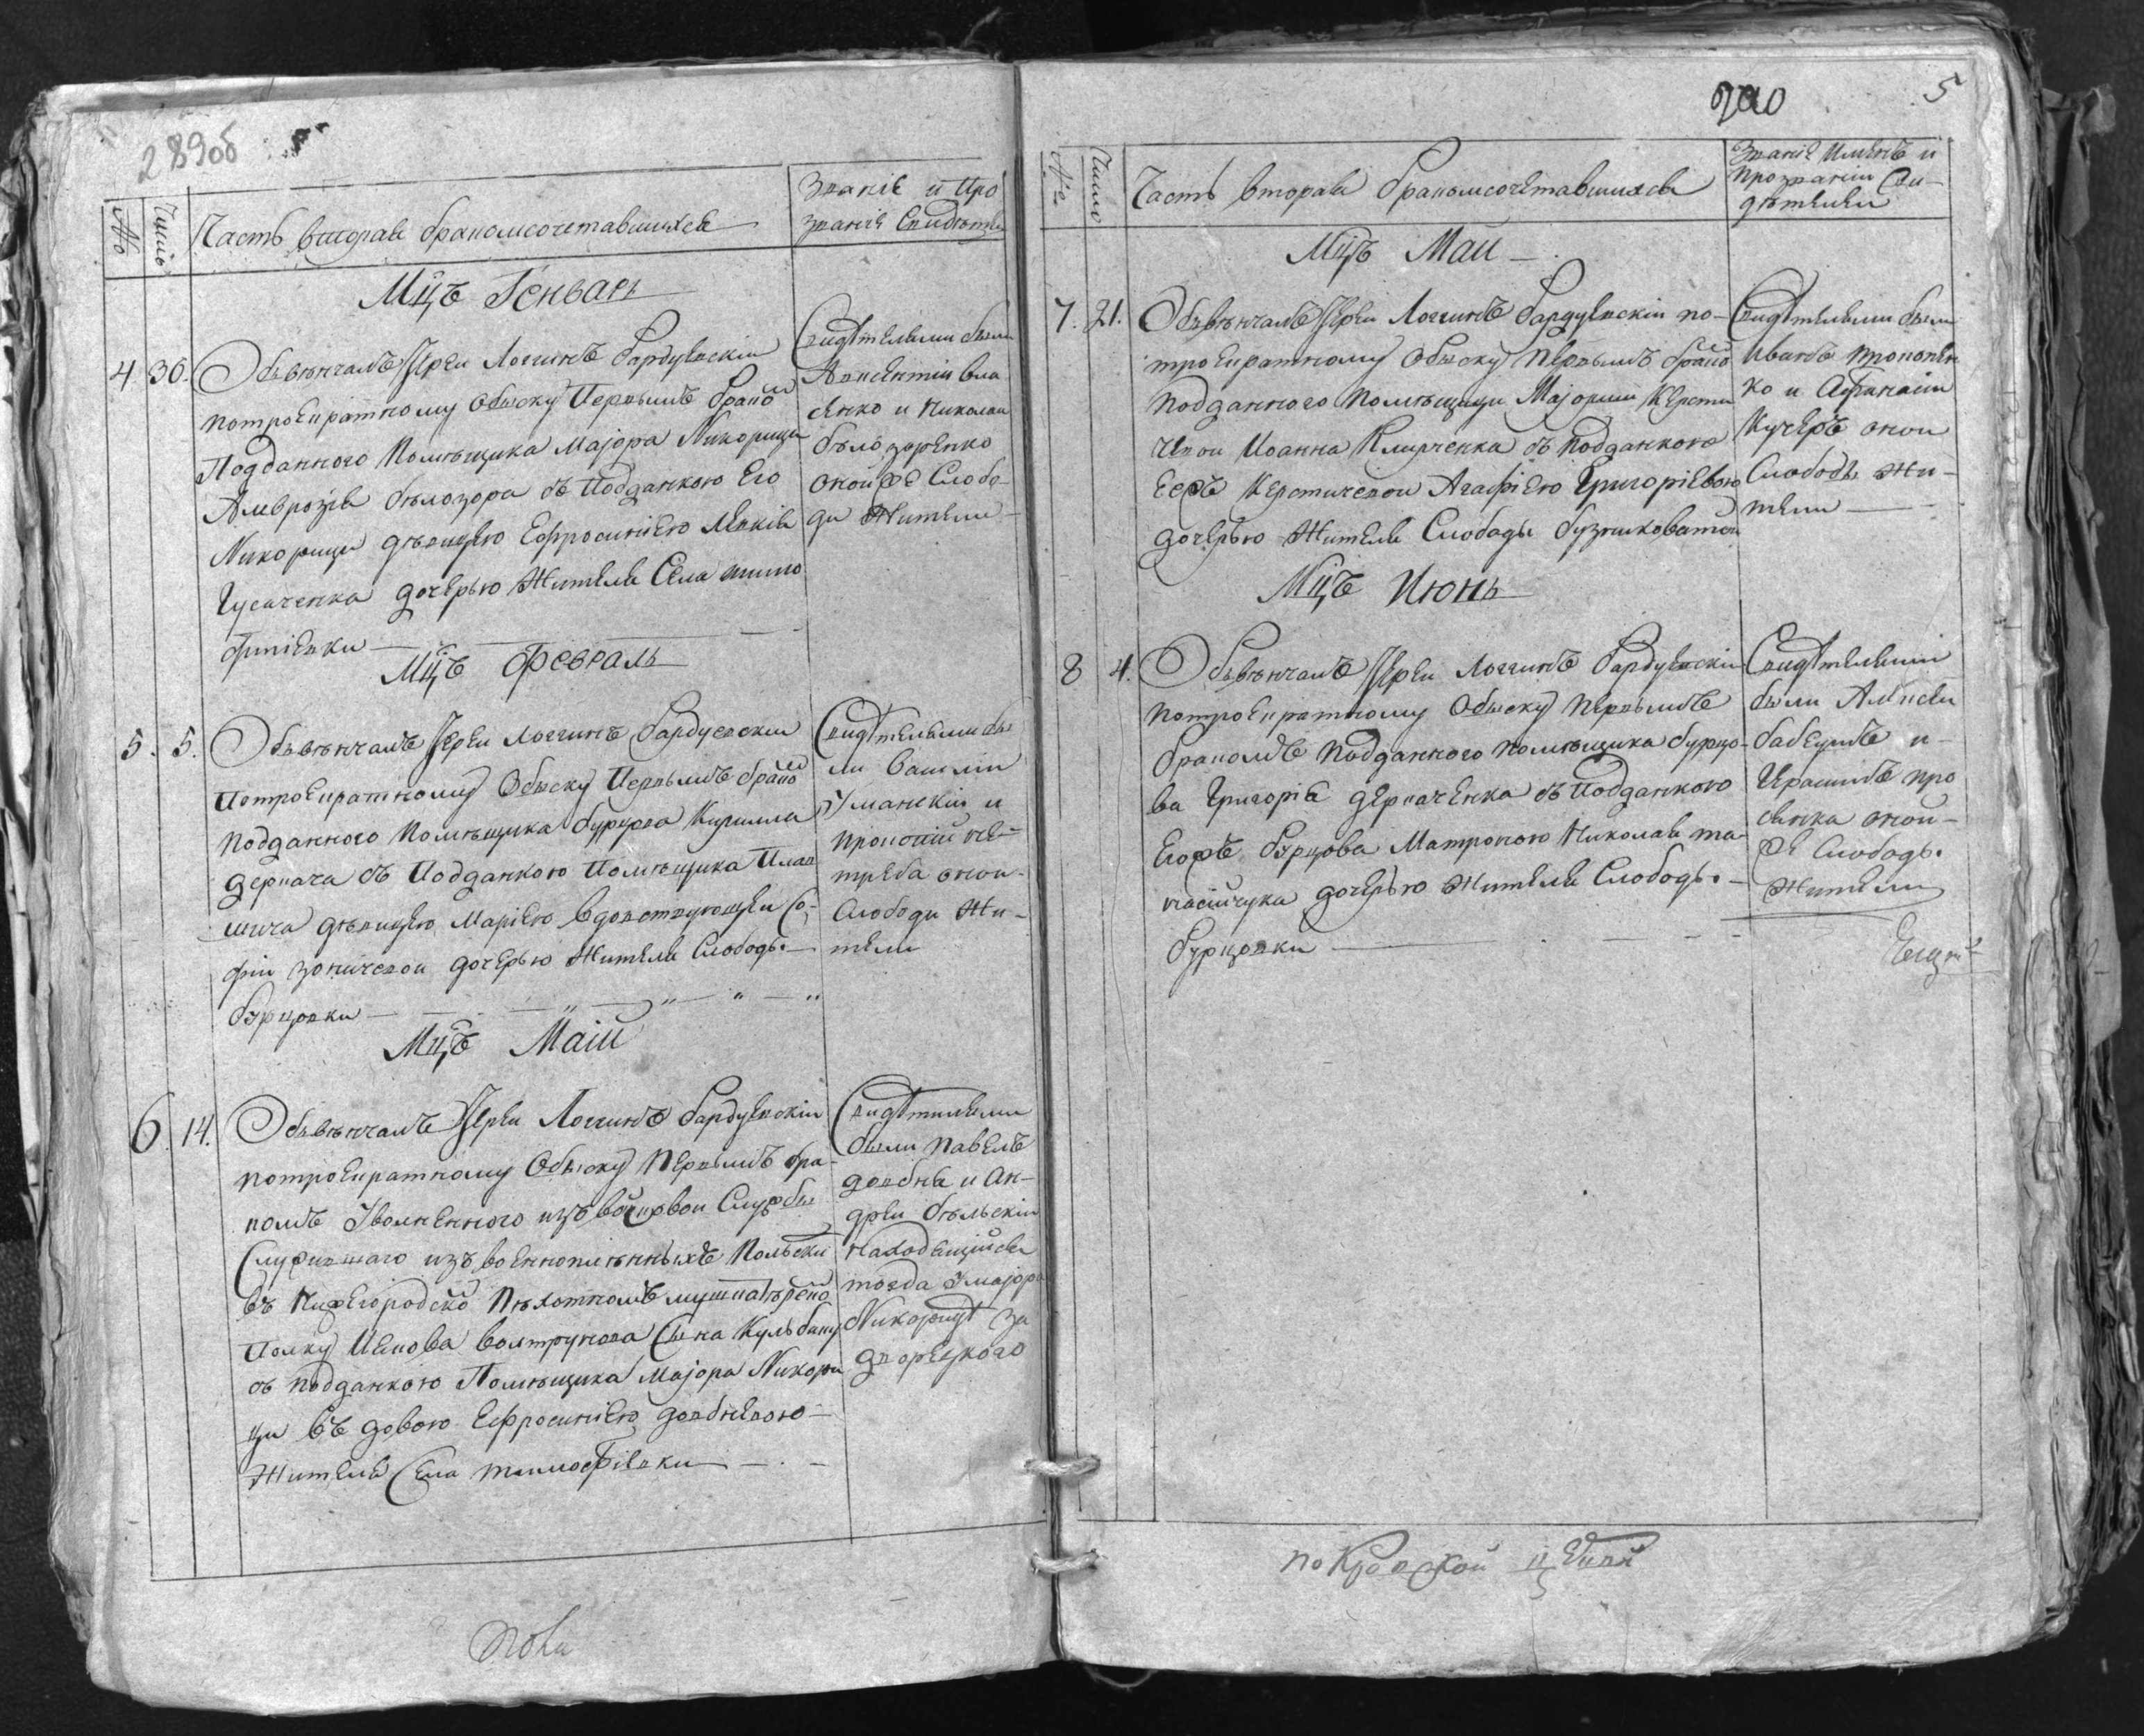 289об
№
Число
Часть вторая бракомсочетавшихся
Званіе и про
званія Свидѣте
Мцъ Генварь
4. 30. Обвѣнчалъ Іерей Логгинъ Бардуевскій
потроекратному обыску первымъ брако
Подданного Помѣщика Маіора Никорици
Амврозія бѣлозора съ подданкою Его
Никорици дѣвицею Ефросиніею
Гусаченка дочерью Жителя Села тимо
фиіевки
Свидѣтелями были
Авксентій вла
сенко и Николай
бѣлозоренко
оной же Слобо
ди Жители
Мцъ Февраль
5. 5. Обвѣнчалъ Іерей Логгинъ Бардуевскій
потроекратному Обыску первымъ брако
подданного помѣщика бурцова Кирилла
деркача съ подданкою помѣщика
дѣвицею Маріею вдовствующей Со
фіи дочерью Жителя Слободы
бурцовки
Свидѣтелями бы
ли Василій
Уманскій и
прокопій
оной
Слободи Жи
тели
Мцъ Маій
6. 14. Обвѣнчалъ Іерей Логгинъ Бардуевскій
потроекратному Обыску первымъ бра
комъ Уволненного изъ воинской Службы
Служившаго изъ военноплѣнныхъ польски
въ Нижегородско пѣхотномъ мушкатѣрско
полку Сына
съ подданкою Помѣщика Маіора Никори
ци въдовою Ефросиніею довбневою
Жителя Села тимофіевки
Свидѣтелями
были павелъ
довбня и Ан
дрей бѣльскій
находящійся
тогда Умаіора
Никорици за
дворецкого
пока
290
5
№
Число
Часть вторая бракомсочетавшихся
Званіе Имянъ и
прозваній Сви
дѣтелей
Мцъ Маи
7. 21. Обвѣнчалъ Іерей Логгинъ Бардуевскій по
троекратному обыску первымъ брако
подданного помѣщици Маіорши Керсти
чевой Иоанна Климченка съ подданкою
Еяжъ Керстичевой Агафіею Григоріевою
дочерью Жителя Слободы бузниковатой
Свидѣтелями были
Иванъ прокопен
ко и Афанасій
Кучеръ оной
Слободы Жи
тели
Мцъ Июнь
8 4. Обвѣнчалъ Іерей Логгинъ Бардуевскій
потроекратному Обыску первымъ
бракомъ подданного помѣщика бурцо
ва Григорія деркаченка съ подданкою
Егожъ бурцова Матроною Николая
дочерью Жителя Слободы
бурцовки
Свидѣтелями
были Алексей
и
оной
же Слободы
Жители